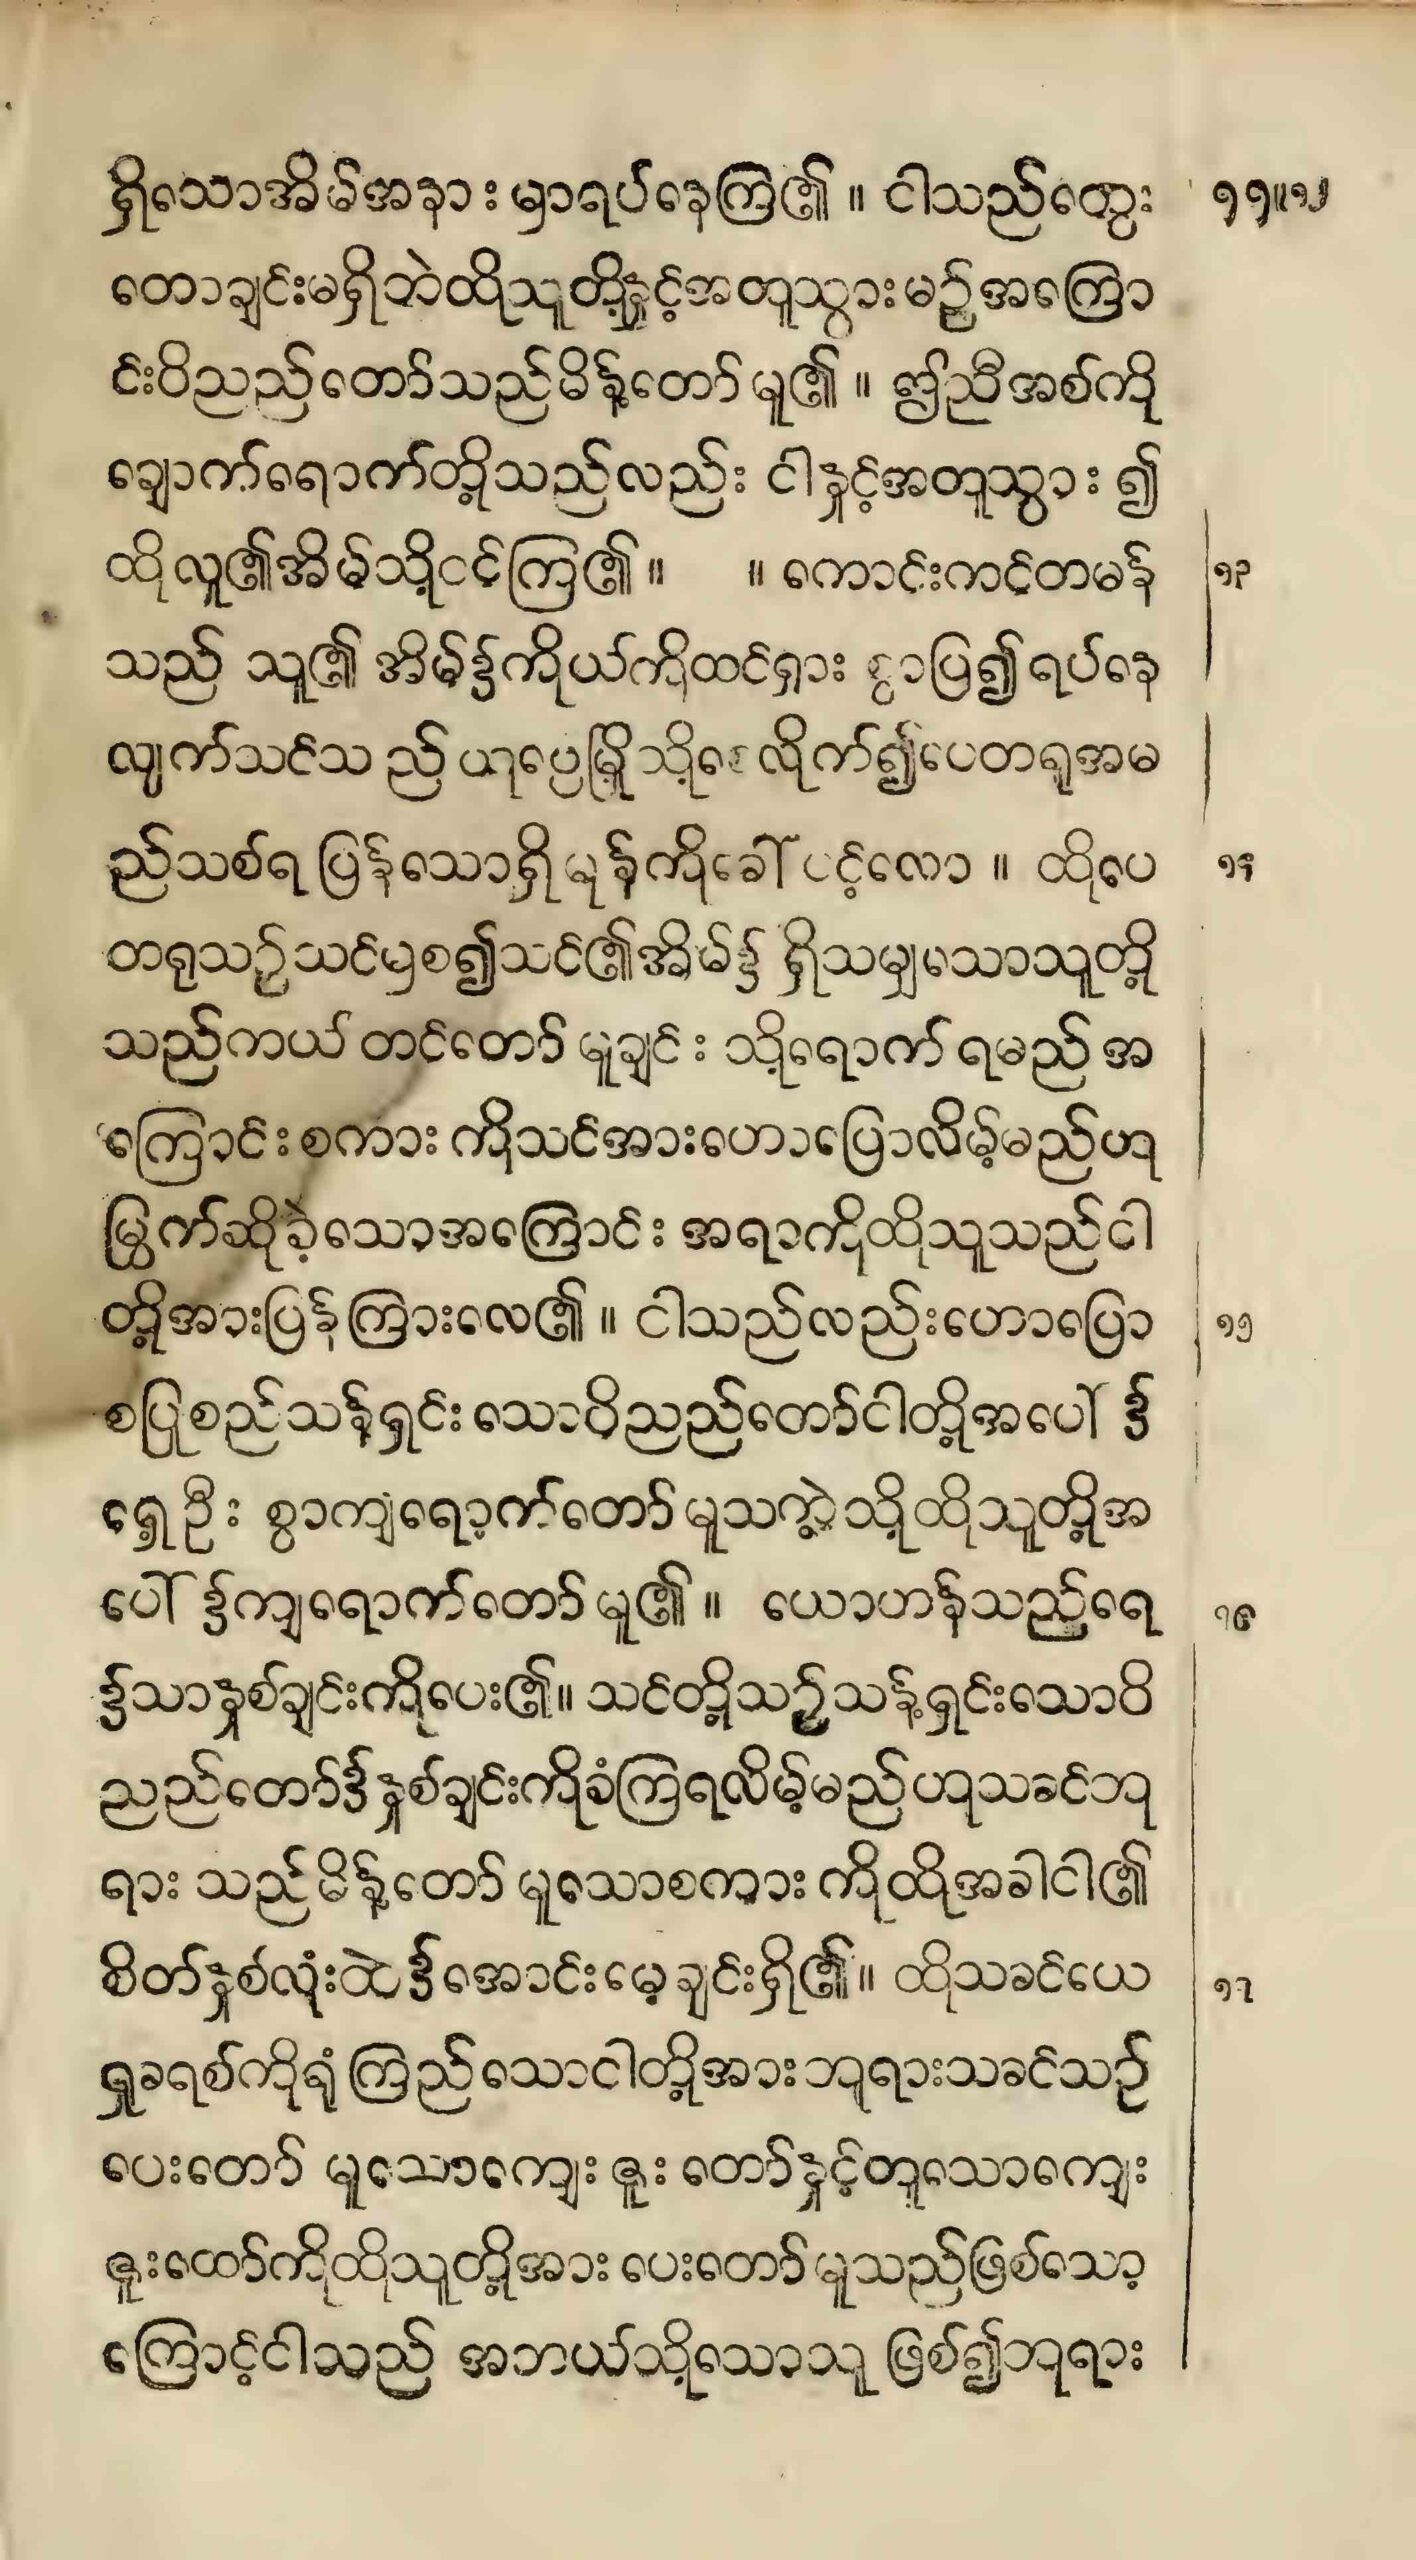 ရှိသောအိမ်အနားမှာရပ်နေကြ၏။ ငါသည်တွေး ၁၁။၁၂
တောချင်းမရှိဘဲထိုသူတို့နှင့်အတူသွားမည့်အကြော
င်းဝိညည်တော်သည်မိန့်တော်မူ၏။ ဤညီအစ်ကို
ချောက်ရောက်တို့သည်လည်း ငါနှင့်အတူသွား၍
ထိုလူ၏အိမ်သို့ဝင်ကြ၏။ ။ကောင်းကင်တမန် ၁၃
သည် သူ၏အိမ်၌ကိုယ်ကိုထင်ရှားစွာပြ၍ရပ်နေ
လျက်သင်သည်ယုပ္ပေမြို့သို့စေလိုက်၍ပေတရုအမ
ည်သစ်ရပြန်သောရှိမုန်ကိုခေါ်ပင့်လော။ ထိုပေ ၁၄
တရုသည်သင်မှစ၍သင်၏အိမ်၌ရှိသမျှသောသူတို့
သည်ကယ်တင်တော်မူချင်းသို့ရောက်ရမည်အ
ကြောင်းစကားကိုသင်အားဟောပြောလိမ့်မည်ဟု
မြွက်ဆိုခဲ့သောအကြောင်းအရာကိုထိုသူသည်ငါ
တို့အားပြန်ကြားလေ၏။ ငါသည်လည်းဟောပြော ၁၅
စပြုစည်သန့်ရှင်းသောဝိညည်တော်ငါတို့အပေါ်၌
ရှေ့ဦးစွာကျရောက်တော်မူသကဲ့သို့ထိုသူတို့အ
ပေါ်၌ကျရောက်တော်မူ၏။ ယောဟန်သည်ရေ ၁၆
၌သာနှစ်ချင်းကိုပေး၏။ သင်တို့သည်သန့်ရှင်းသောဝိ
ညည်တော်၌နှစ်ချင်းကိုခံကြရလိမ့်မည်ဟုသခင်ဘု
ရားသည်မိန့်တော်မူသောစကားကိုထိုအခါငါ၏
စိတ်နှစ်လုံးထဲ၌အောင်းမေ့ချင်းရှိ၏။ ထိုသခင်ယေ ၁၇
ရှုခရစ်ကိုရုံကြည်သောငါတို့အားဘုရားသခင်သည်
ပေးတော်မူသောကျေးဇူးတော်နှင့်တူသောကျေး
ဇူးတော်ကိုထိုသူတို့အားပေးတော်မူသည်ဖြစ်သော့
ကြောင့်ငါသည် အဘယ်သို့သောသူဖြစ်၍ဘုရား